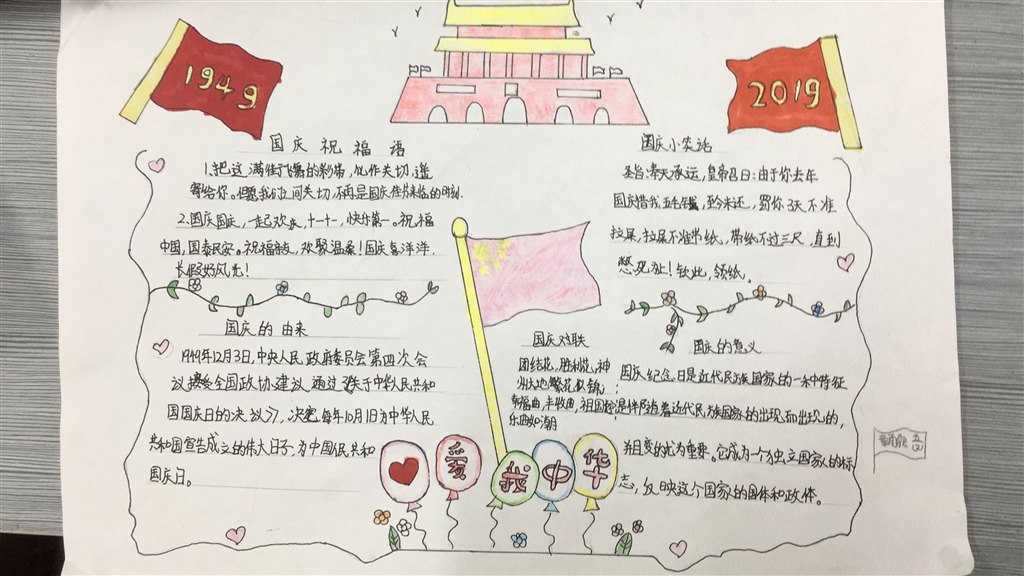 1949
2019
国庆祝福语
1.把这满街飞舞的彩带,化作关切,遥
寄给你。但愿我们之间关切,不再是国庆佳节来临的时刻.
2.国庆国庆,一起欢庆,十一十一,快乐第一。祝福
中国,国泰民安。祝福朋友,欢聚温柔!国庆喜洋洋
长假好风光!
国庆小笑话
圣旨:奉天承运,皇帝召曰:由于你去年
国庆借我五毛钱,至今未还,罚你3天不准
拉屎,拉屎不准带纸,带纸不过三尺,直到
憋死止!钦此,领纸。
国庆的由来
1949年12月3日,中央人民政府委员会第四次会
议接受全国政协建议通过 中华人民共和
国国庆日的决议》,决定每年10月1日为中华人民
共和国宣告成立的伟大日子,为中国人民共和
国庆日。
国庆对联
团结花,胜利花,神
州大地繁花似锦;
幸福曲,丰收曲,祖国
乐曲如潮
国庆的意义
国庆纪念日是近代民族国家的一种特征
是伴随着近代民族国家的出现而出现的,
并且变的尤为重要。它成为一个独立国家的标
志,反映这个国家的国体和政体。
爱我中华